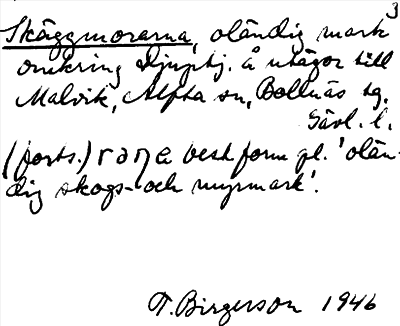 3
Skäggmorarna, oländig mark
omkring Djuptj. å utägor till
Malvik, Alfta sn, Bollnäs tg.
Gävl. l.
(forts.) rɔŋa best form pl. 'olän-
dig skogs- och myrmark'.
T. Birgerson 1946